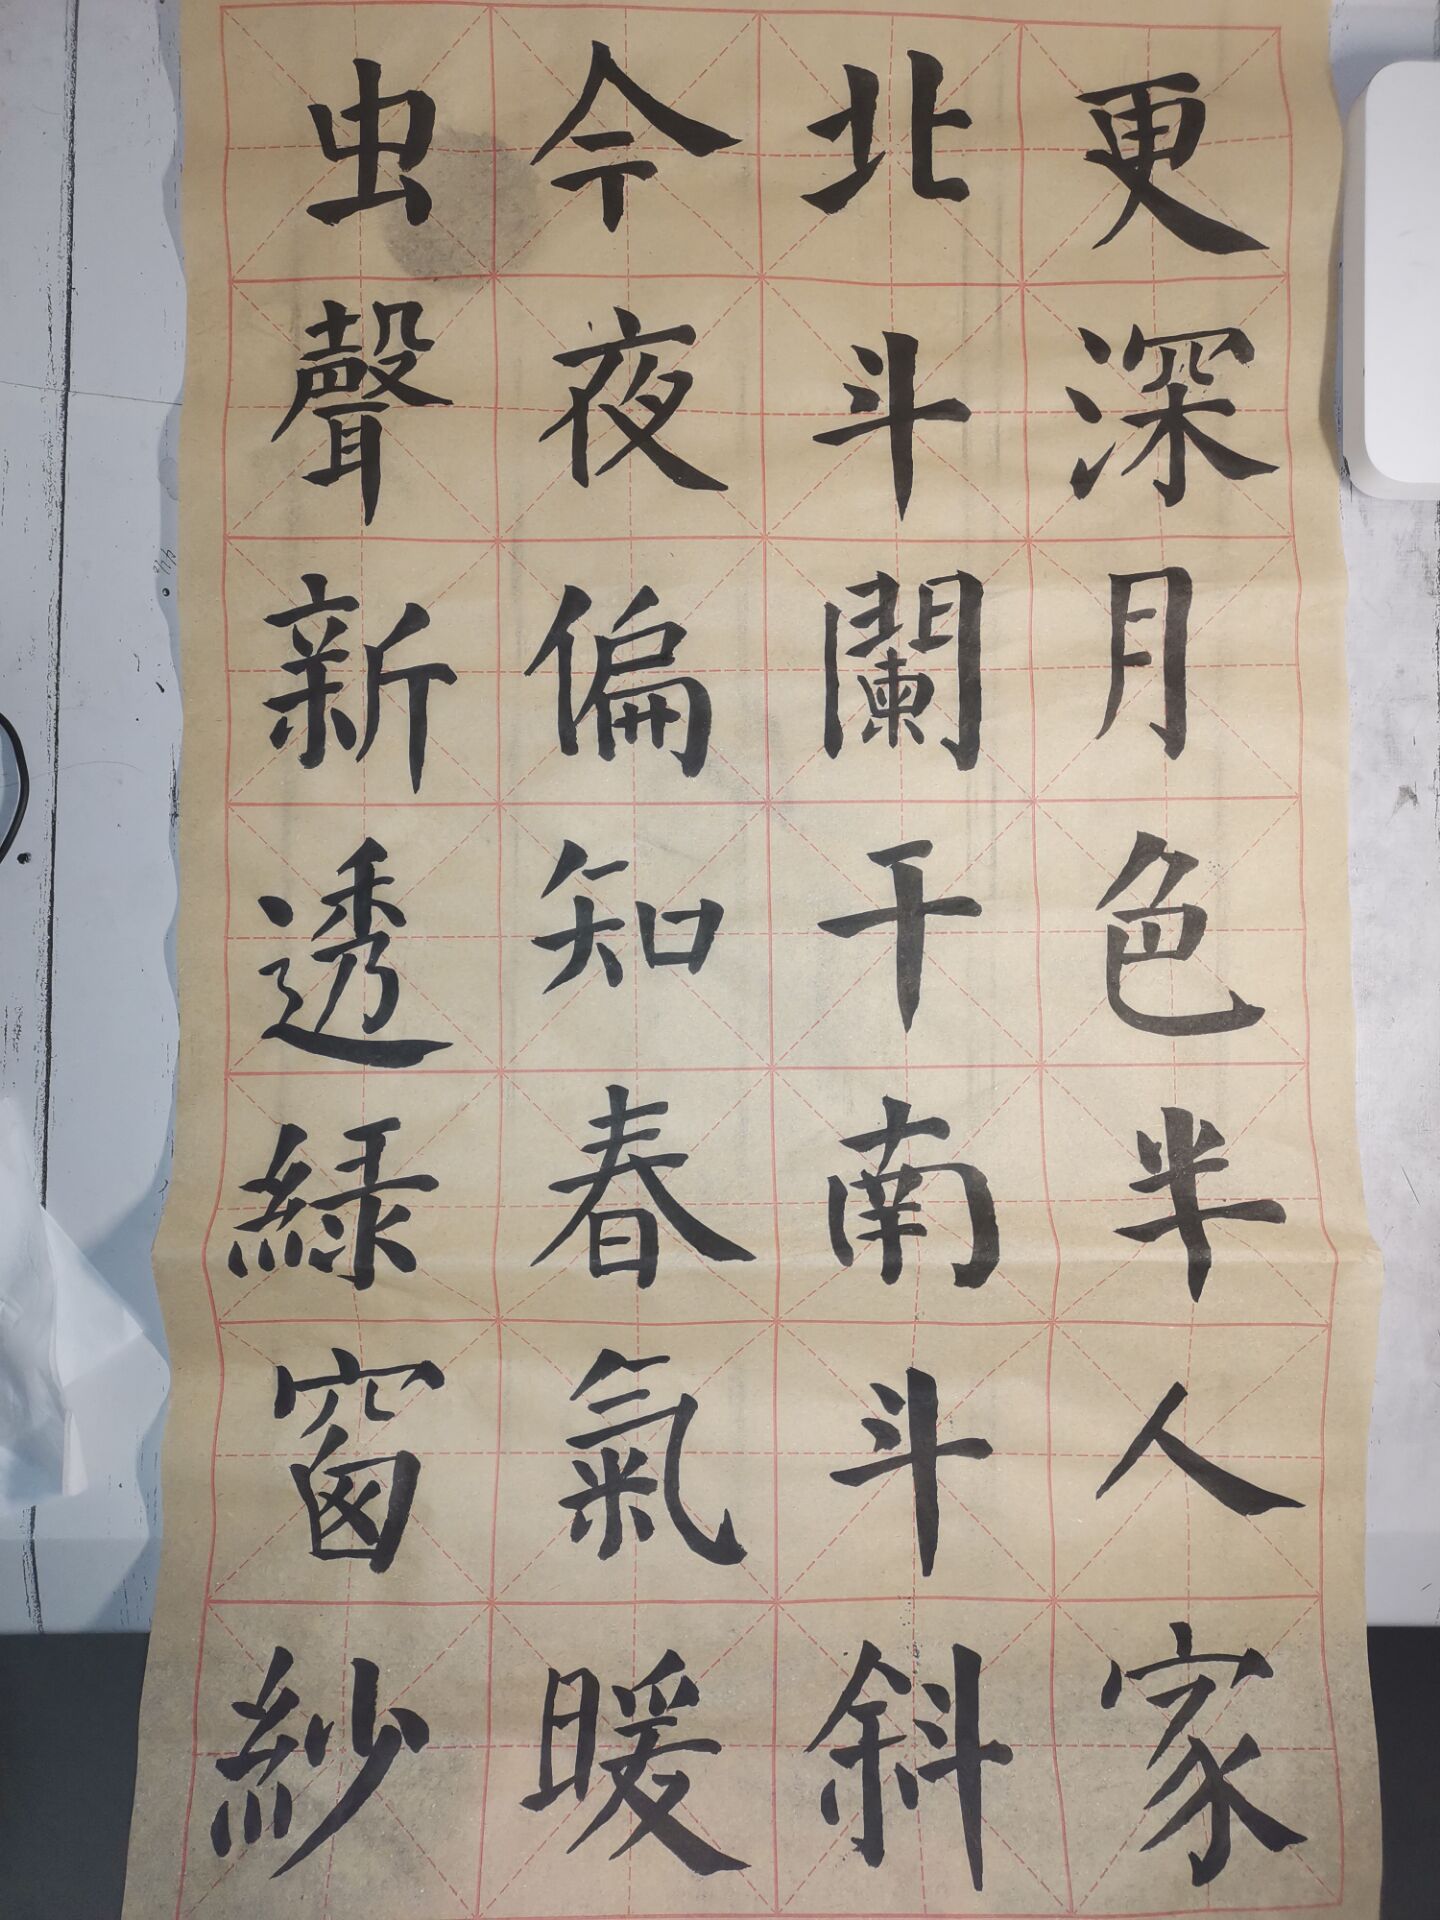 更深月色半人家
北斗闌干南斗斜
今夜偏知春氣暖
虫聲新透綠窗紗